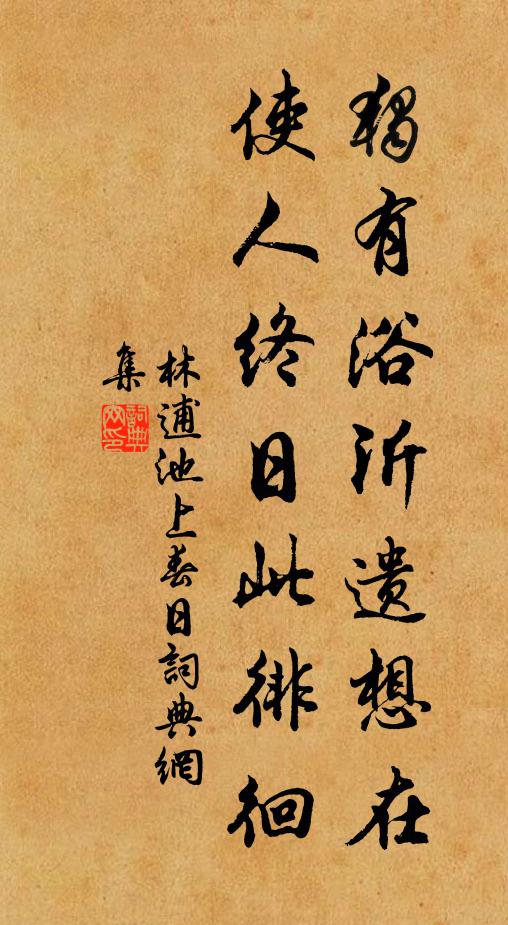 獨有浴沂遺想在
使人終日此徘徊
林逋池上春日詞典網
集
詞典
网印